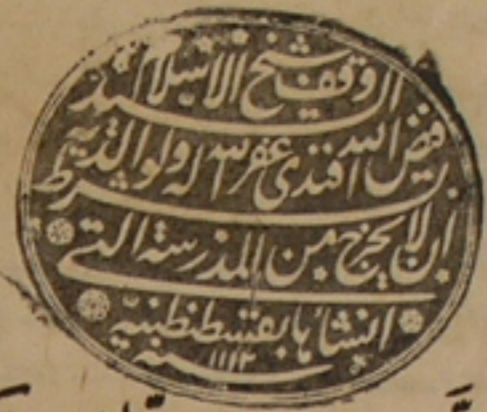 وقف شيخ الاسلام السيد
فيض الله افندى غفر الله له ولوالديه
بشرط ان لا يخرج من المدرسة التى
انشأها بقسطنطنية
سنة ١١١٣